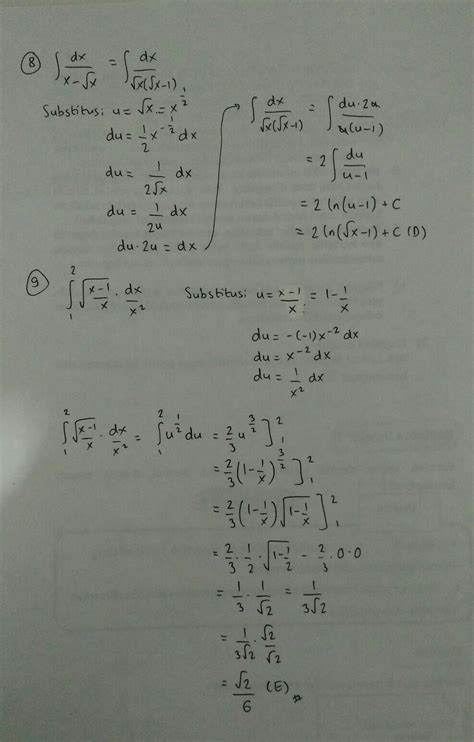 8 ∫ dx/(x-√x) = ∫ dx/(√x(√x-1))
Substitusi u = √x = x^(1/2)
du = 1/2 x^(-1/2) dx
du = 1/(2√x) dx
du = 1/(2u) dx
du·2u = dx
∫ dx/(√x(√x-1)) = ∫ du·2u/(u(u-1))
= 2 ∫ du/(u-1)
= 2 ln(u-1) + C
= 2 ln(√x-1) + C (D)
9 ∫₁² √((x-1)/x) · dx/x² Substitusi u = (x-1)/x = 1 - 1/x
du = -(-1)x^(-2) dx
du = x^(-2) dx
du = 1/x² dx
∫₁² √((x-1)/x) · dx/x² = ∫₁² u^(1/2) du = 2/3 u^(3/2) ]₁²
= 2/3 (1 - 1/x)^(3/2) ]₁²
= 2/3 (1 - 1/x) √(1 - 1/x) ]₁²
= 2/3 · 1/2 · √(1 - 1/2) - 2/3 · 0·0
= 1/3 · 1/√2 = 1/(3√2)
= 1/(3√2) · √2/√2
= √2/6 (E)